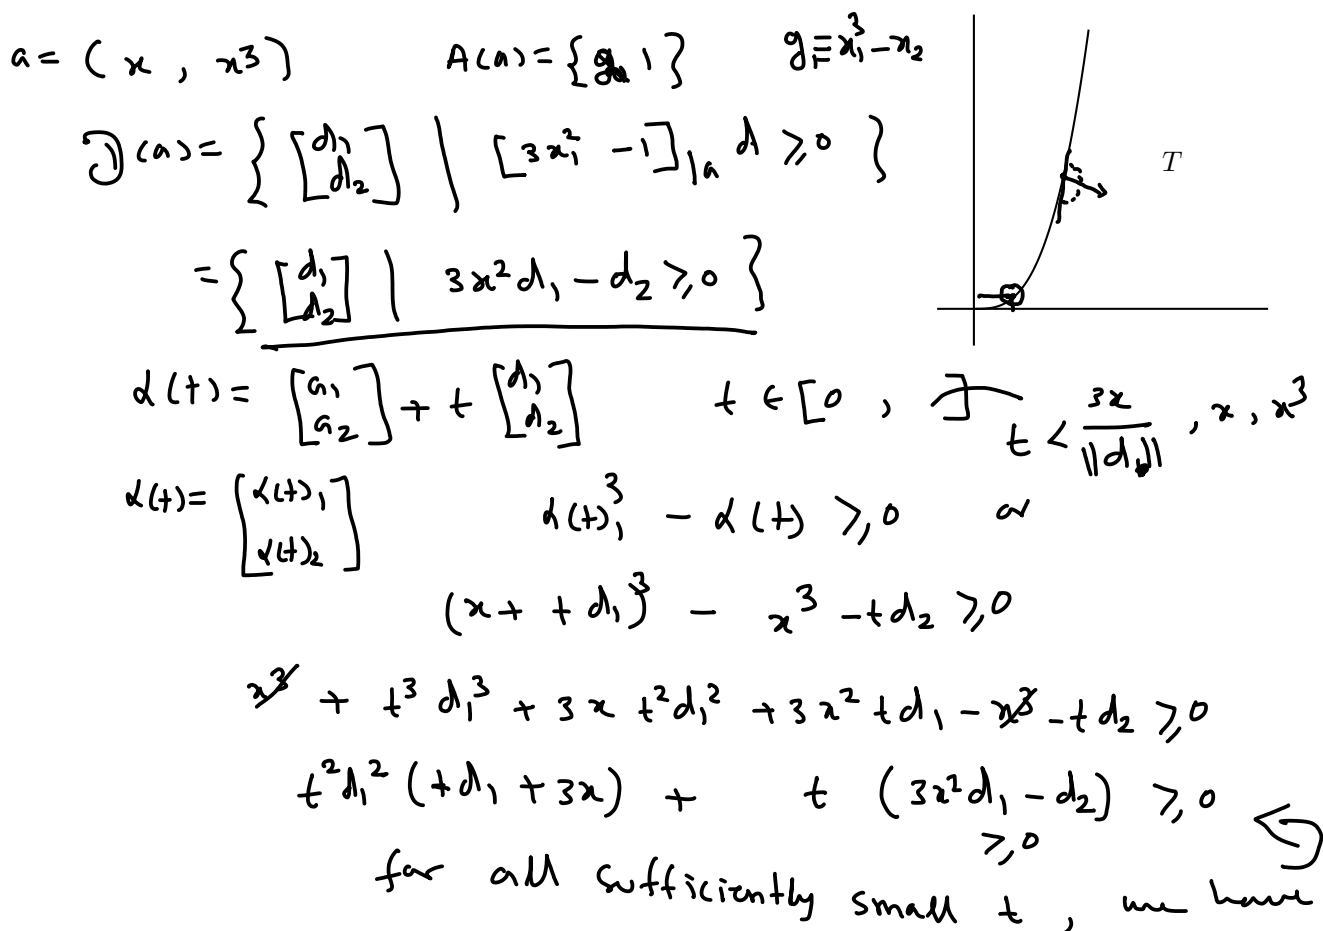 a = (x, x³) A(a) = {g₁} g₁ ≡ x₁³ − x₂
D(a) = { [d₁ d₂] | [3x₁² −1]|ₐ d ⩾ 0 }
T
= { [d₁ d₂] | 3x²d₁ − d₂ ⩾ 0 }
α(t) = [a₁ a₂] + t [d₁ d₂] t ∈ [0, ] t < 3x/||d₁||, x, x³
α(t) = [α(t)₁ α(t)₂] α(t)₁³ − α(t) ⩾ 0 or
(x + td₁)³ − x³ − td₂ ⩾ 0
x³ + t³d₁³ + 3x t²d₁² + 3x²td₁ − x³ − td₂ ⩾ 0
t²d₁² (td₁ + 3x) + t (3x²d₁ − d₂) ⩾ 0
⩾ 0
for all sufficiently small t, we have